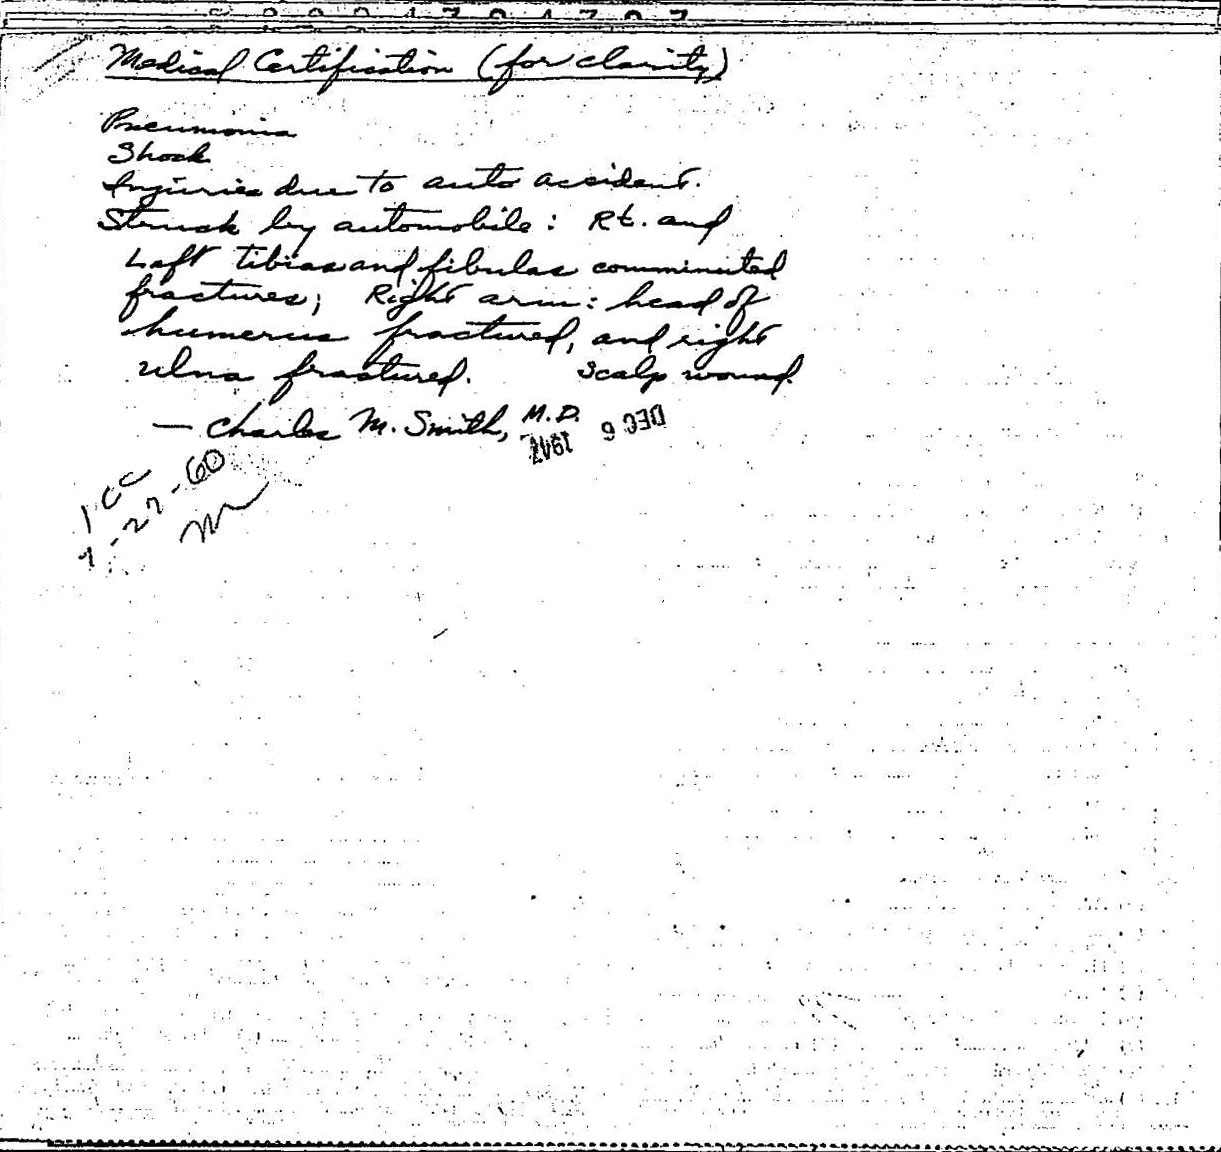 Medical Certification (for clarity)
Pneumonia
Shock
Injuries due to auto accident.
Struck by automobile: Rt. and
Left tibias and fibulas comminuted
fractures; Right arm: head of
humerus fractured, and right
ulna fractured. Scalp wound.
— Charles M. Smith, M.D.
DEC 6 1947
1 cc
7-27-60